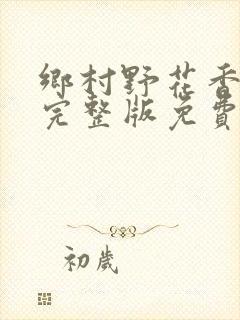 鄉村野花香
完整版免費
初歲